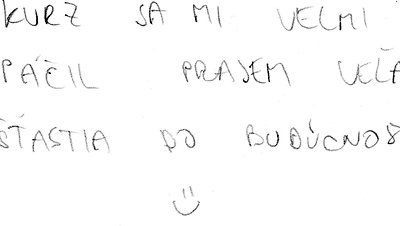 KURZ SA MI VEĽMI
PÁČIL PRAJEM VEĽA
ŠŤASTIA DO BUDÚCNOS